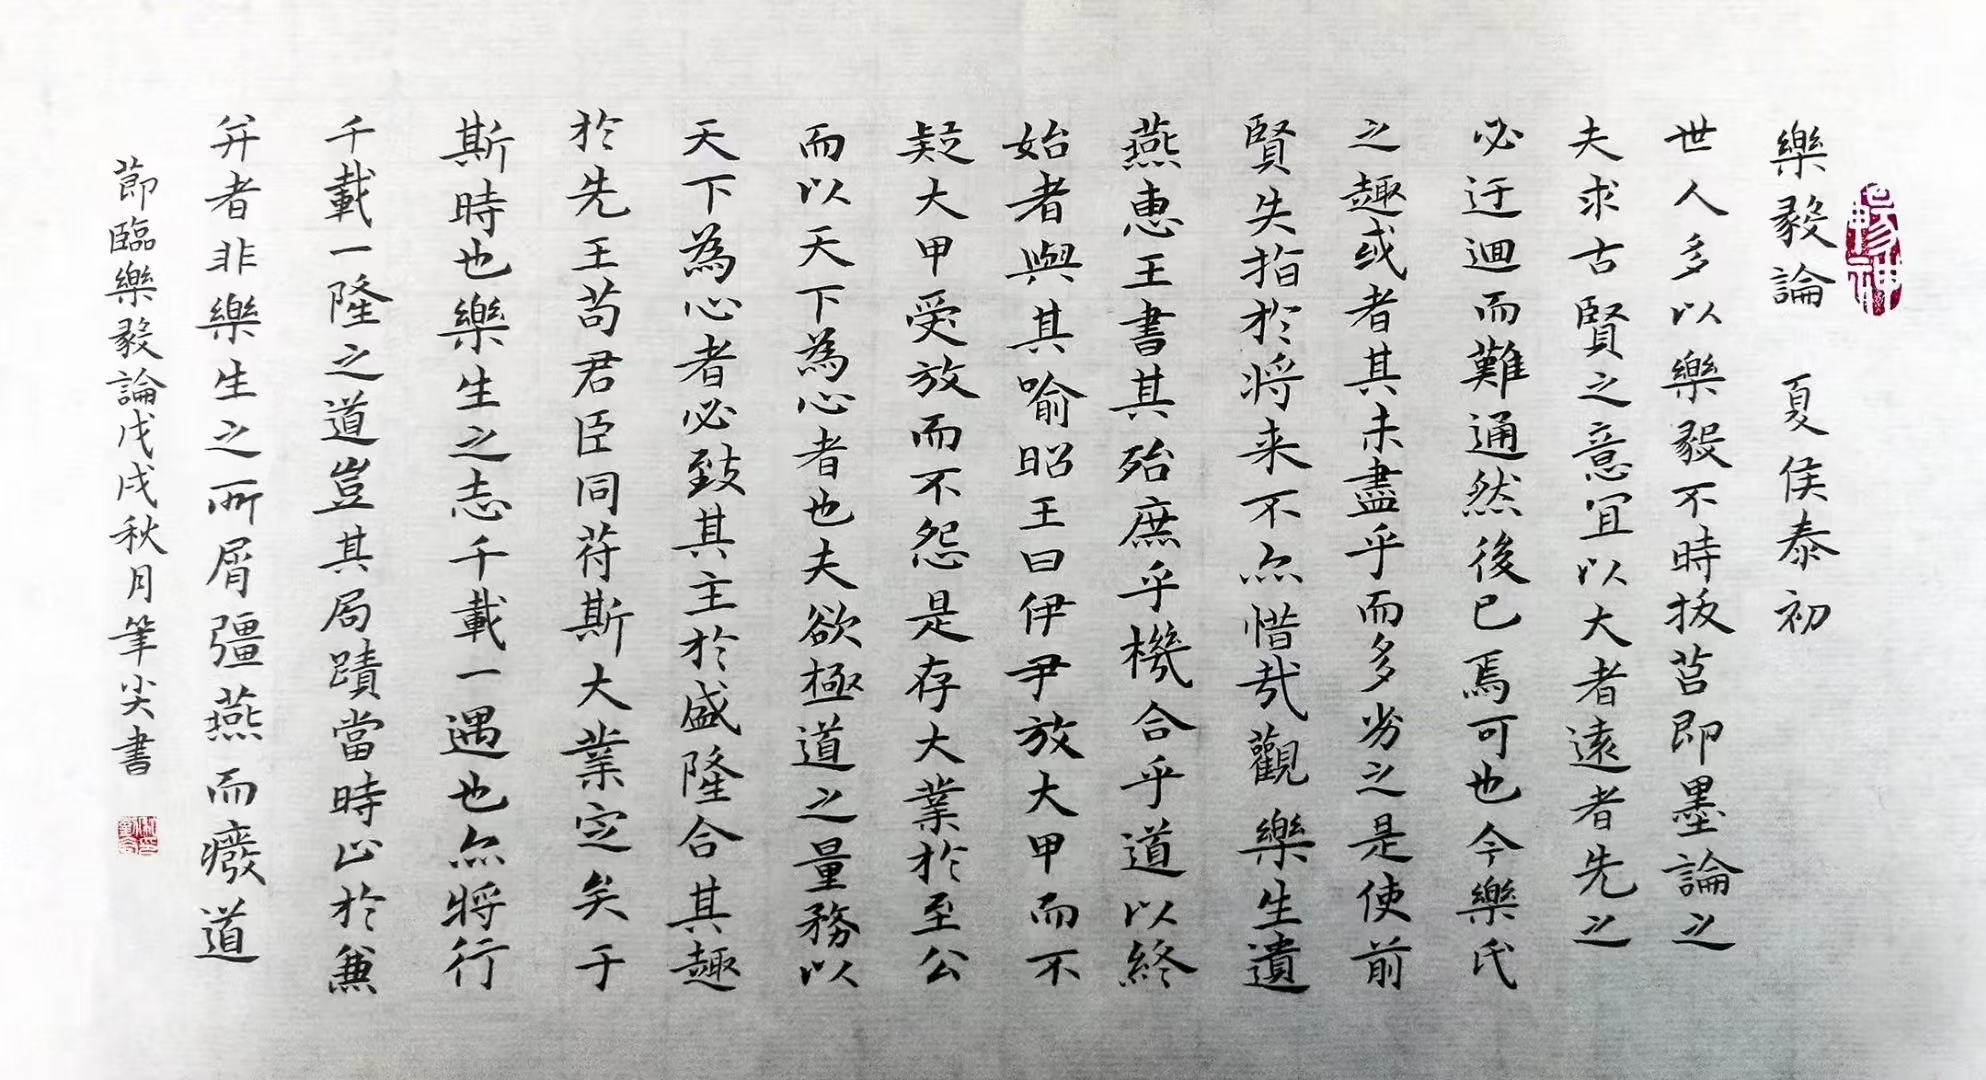 樂毅論 夏侯泰初
世人多以樂毅不時拔莒即墨論之
夫求古賢之意宜以大者遠者先之
必迂迴而難通然後已焉可也今樂氏
之趣或者其未盡乎而多劣之是使前
賢失指於將来不亦惜哉觀樂生遺
燕惠王書其殆庶乎機合乎道以終
始者與其喻昭王曰伊尹放大甲而不
疑大甲受放而不怨是存大業於至公
而以天下為心者也夫欲極道之量務以
天下為心者必致其主於盛隆合其趣
於先王苟君臣同苻斯大業定矣于
斯時也樂生之志千載一遇也亦將行
千載一隆之道豈其局蹟當時止於兼
并者非樂生之所屑彊燕而癈道
節臨樂毅論戊戌秋月筆尖書